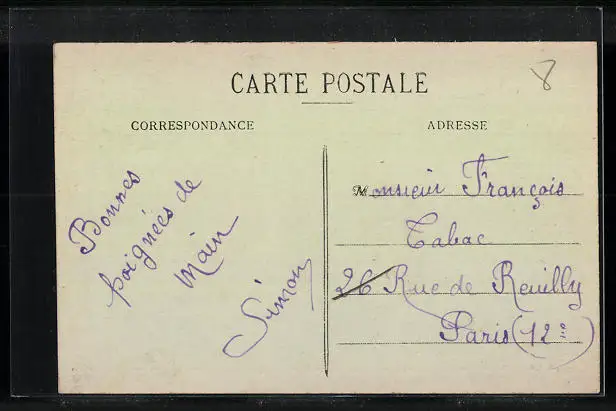 CARTE POSTALE
8
CORRESPONDANCE
ADRESSE
Bonnes
poignées de
main
Simon
Monsieur François
Tabac
26 Rue de Reuilly
Paris (12e)